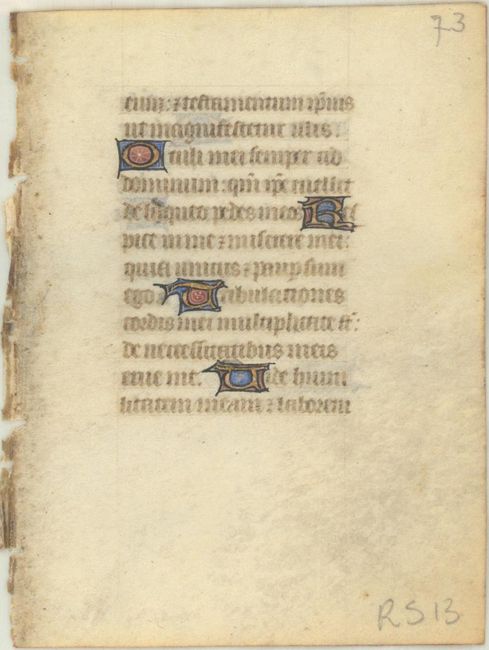 73
eum: ⁊ testamentum ip̄ius
ut magnifestetur illis.
Oculi mei semper ad
dominum: qm̄ ip̄e euellet
de laqueo pedes meos. Res
pice in me ⁊ miserere mei:
quia unicus ⁊ paup̄ sum
ego. Tribulationes
cordis mei multiplicate st̄:
de necessitatibus meis
erue me. Vide humi
litatem meam ⁊ laborem
RS13